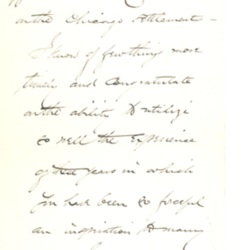 on the Chicago Atlement -
I know of few things more
timely and congratulate
on the ability to utilize
so well the experience
of the years in which
you have been so forceful
an inspiration to many